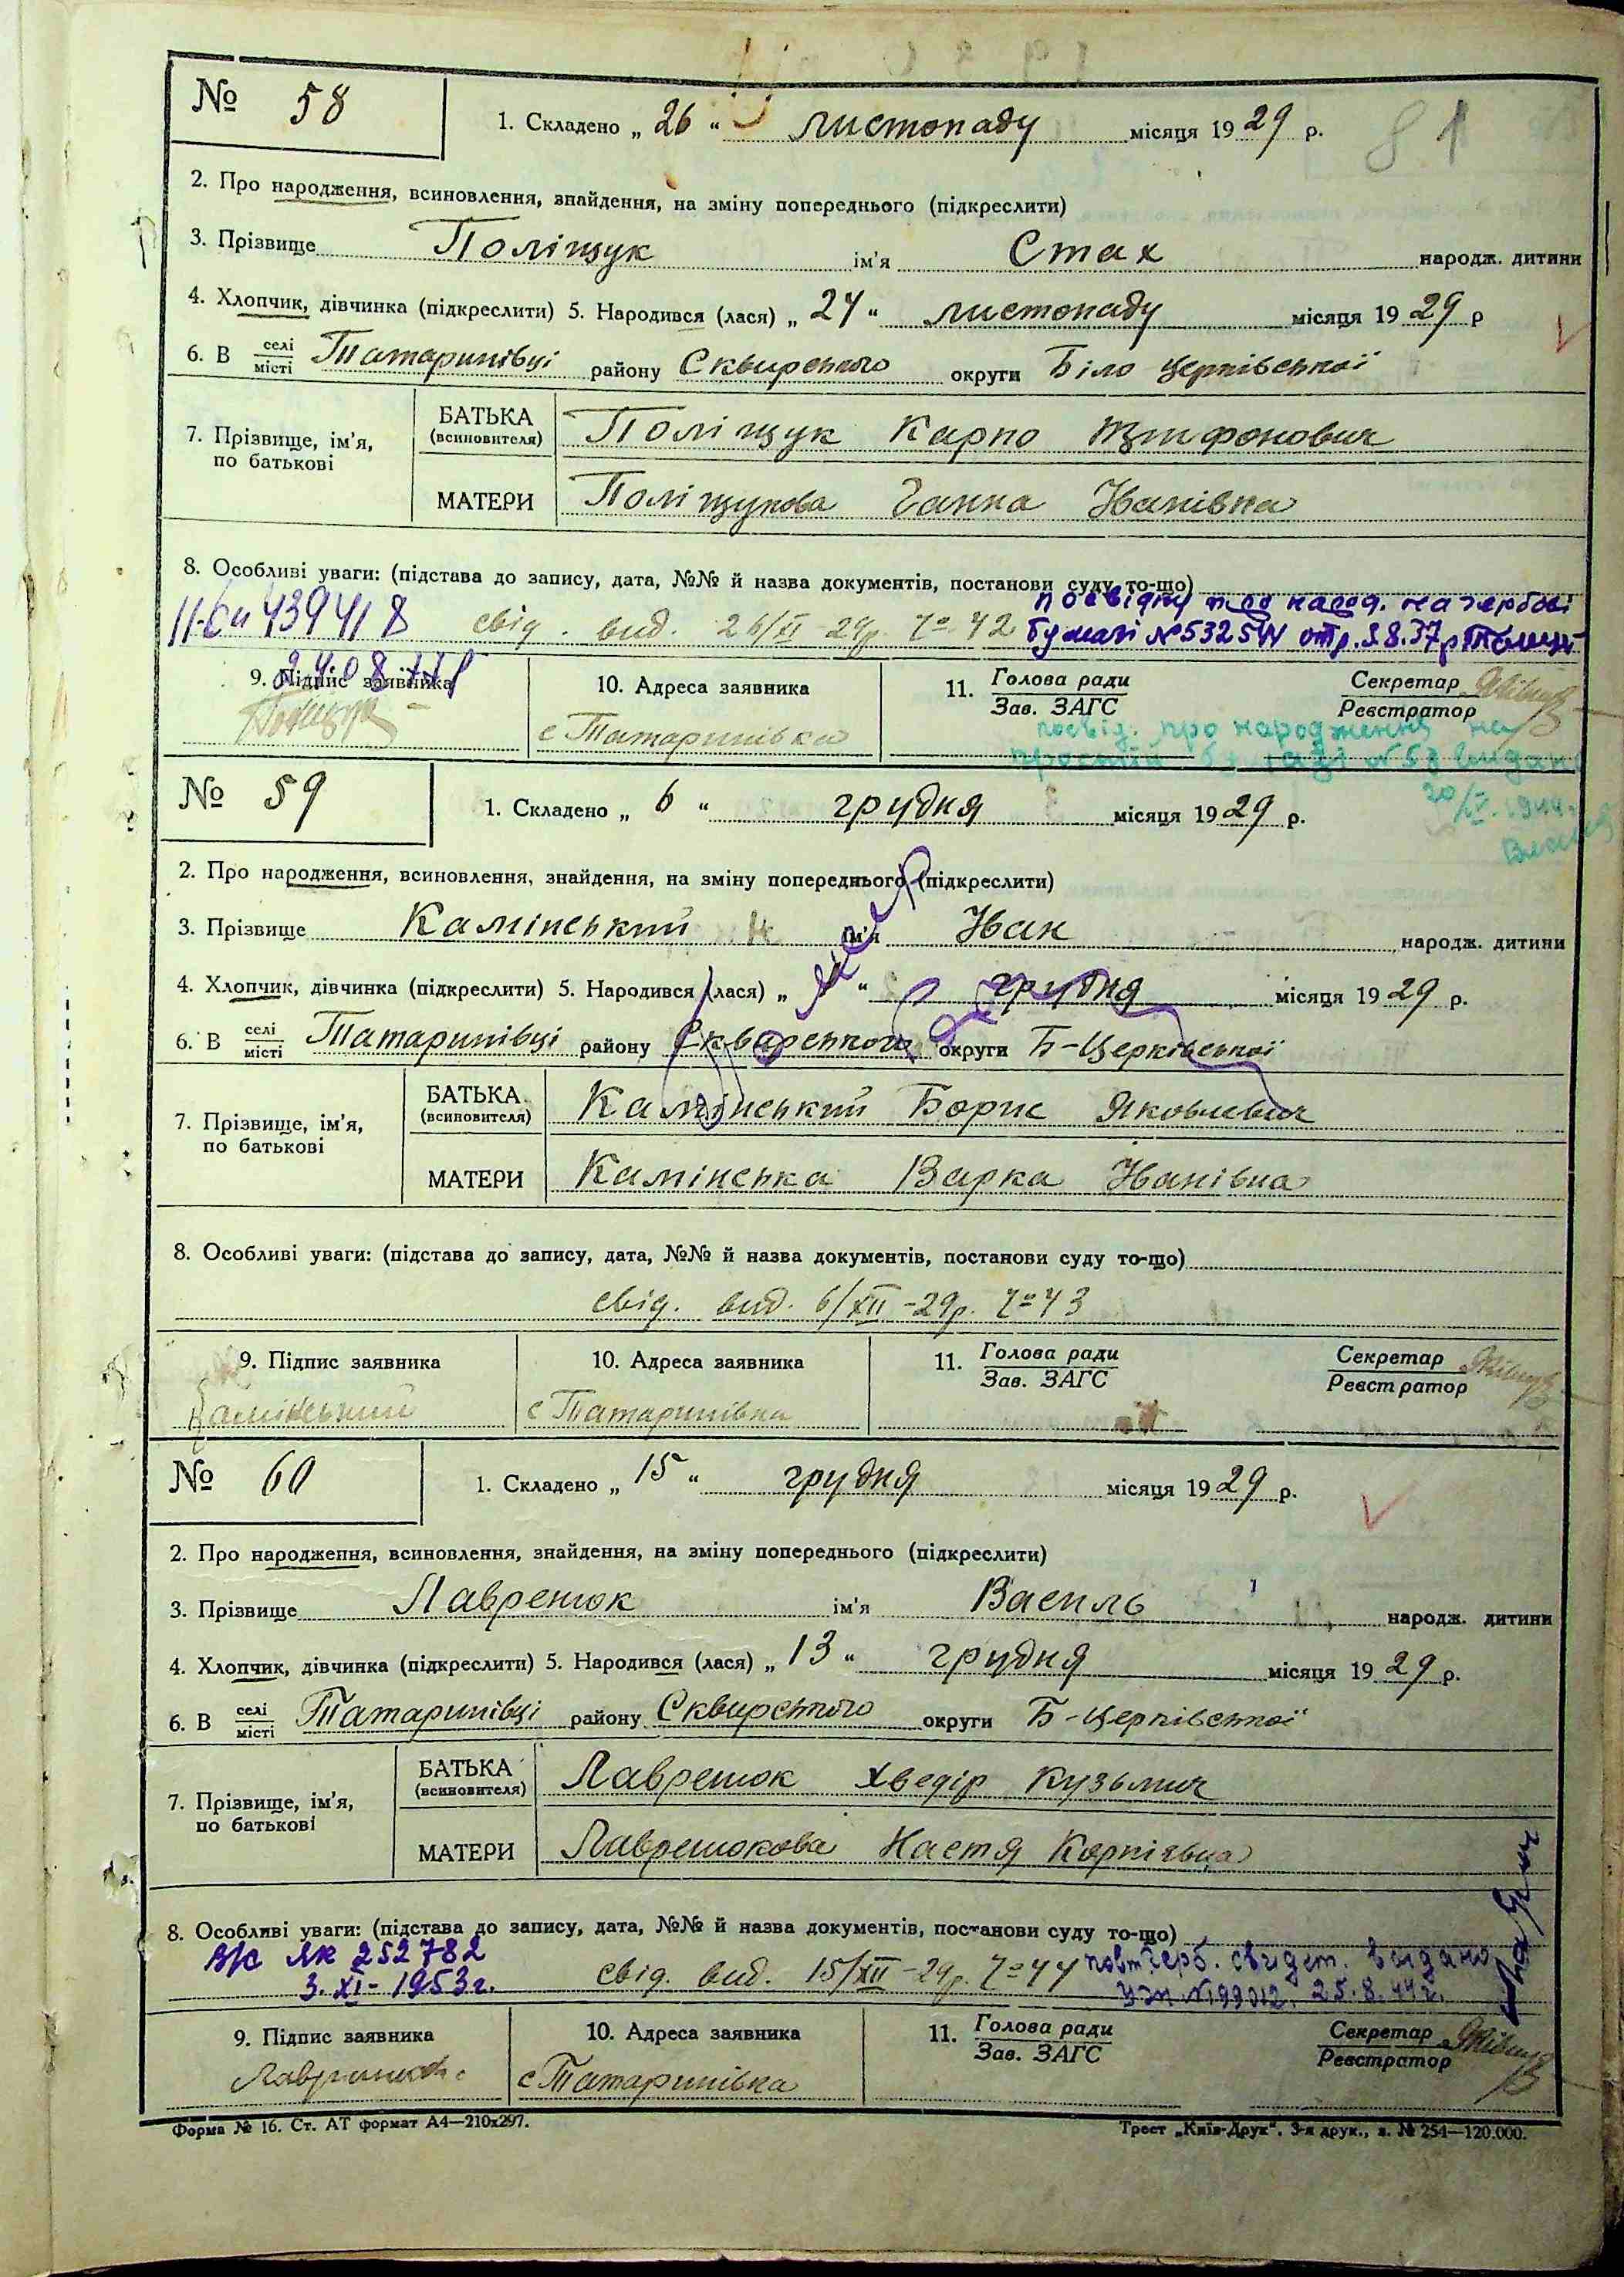 81
№ 58
1. Складено „ 26 “ листопаду місяця 1929 р.
2. Про народження, всиновлення, знайдення, на зміну попереднього (підкреслити)
3. Прізвище Поліщук ім'я Стах народж. дитини
4. Хлопчик, дівчинка (підкреслити) 5. Народився (лася) „ 24 “ листопаду місяця 1929 р
6. В селі місті Татаринівці району Сквирського округи Біло Церківської
7. Прізвище, ім'я, по батькові
БАТЬКА (всиновителя) Поліщук Карпо
МАТЕРИ Поліщукова Ганна Іванівна
8. Особливі уваги: (підстава до запису, дата, №№ й назва документів, постанови суду то-що)
посвідку про народ. на гербові
439418 свід. вид. 26/XI 29р. № 42 бумазі № 532
9. Підпис заявника 10. Адреса заявника 11. Голова ради Зав. ЗАГС Секретар Реєстратор
Поліщук с Татаринівка
посвід. про народження на
простій бумазі № 58 видано
№ 59
1. Складено „ 6 “ грудня місяця 1929 р.
2. Про народження, всиновлення, знайдення, на зміну попереднього (підкреслити)
3. Прізвище Камінський ім'я Іван народж. дитини
4. Хлопчик, дівчинка (підкреслити) 5. Народився (лася) „ “ грудня місяця 1929 р.
6. В селі місті Татаринівці району Сквирського округи Б-Церківської
7. Прізвище, ім'я, по батькові
БАТЬКА (всиновителя) Камінський Борис Яковлевич
МАТЕРИ Камінська Варка Іванівна
8. Особливі уваги: (підстава до запису, дата, №№ й назва документів, постанови суду то-що)
свід. вид. 6/XII-29р. № 43
9. Підпис заявника 10. Адреса заявника 11. Голова ради Зав. ЗАГС Секретар Реєстратор
Камінський с Татаринівка
№ 60
1. Складено „ 15 “ грудня місяця 1929 р.
2. Про народження, всиновлення, знайдення, на зміну попереднього (підкреслити)
3. Прізвище Лавренюк ім'я Василь народж. дитини
4. Хлопчик, дівчинка (підкреслити) 5. Народився (лася) „ 13 “ грудня місяця 1929 р.
6. В селі місті Татаринівці району Сквирського округи Б-Церківської
7. Прізвище, ім'я, по батькові
БАТЬКА (всиновителя) Лавренюк Хведір Кузьмич
МАТЕРИ Лавренюкова Настя Корніївна
8. Особливі уваги: (підстава до запису, дата, №№ й назва документів, постанови суду то-що)
ЯК 252782 свід. вид. 15/XII-29р. № 44 повт. герб. свідет. видано
3.XI-1953г. № 199012. 25.8.44г.
9. Підпис заявника 10. Адреса заявника 11. Голова ради Зав. ЗАГС Секретар Реєстратор
с Татаринівка
Форма № 16. Ст. АТ формат А4—210x297. Трест „Київ-Друк“. 3-я друк., з. № 254—120.000.